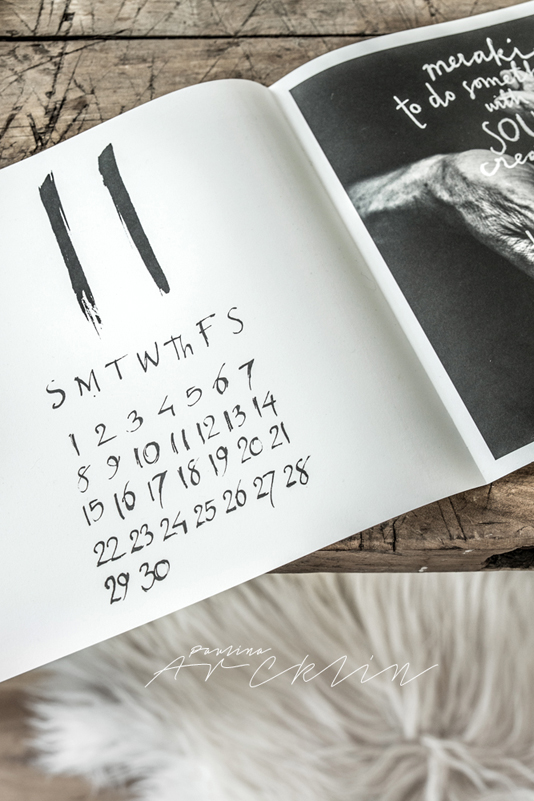 11
S M T W Th F S
1 2 3 4 5 6 7
8 9 10 11 12 13 14
15 16 17 18 19 20 21
22 23 24 25 26 27 28
29 30
meraki
to do someth
with
SOU
crea
Paulina
Arcklin